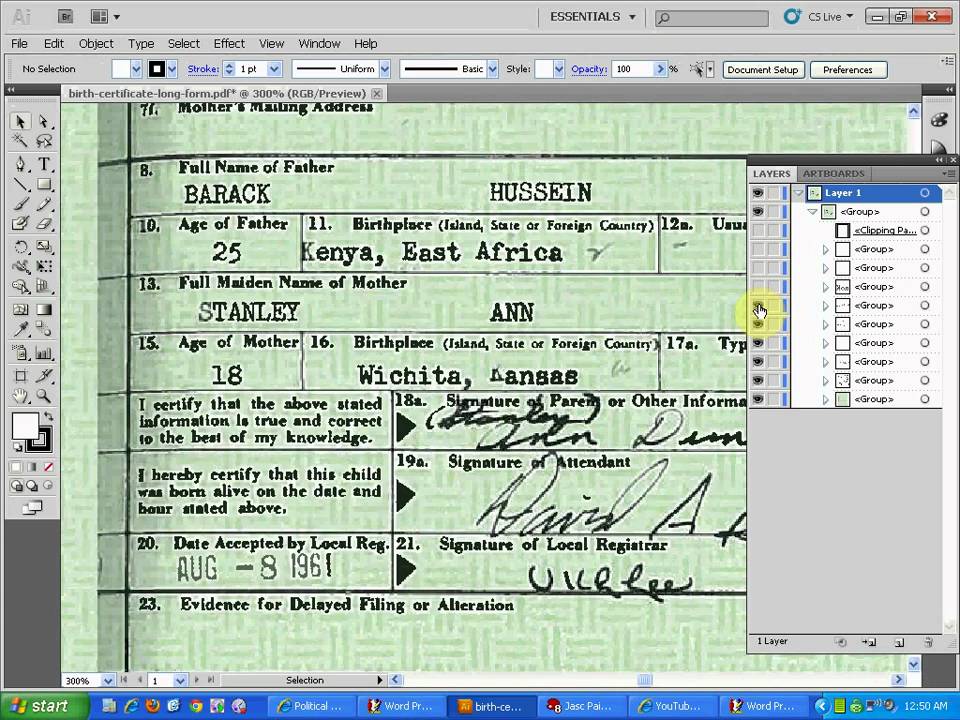 Ai Br ESSENTIALS CS Live
File Edit Object Type Select Effect View Window Help
No Selection Stroke: 1 pt Uniform Basic Style: Opacity: 100 % Document Setup Preferences
birth-certificate-long-form.pdf* @ 300% (RGB/Preview)
Mother's Mailing Address
8. Full Name of Father
BARACK HUSSEIN
10. Age of Father 11. Birthplace (Island, State or Foreign Country) 12a.
25 Kenya, East Africa
13. Full Maiden Name of Mother
STANLEY ANN
15. Age of Mother 16. Birthplace (Island, State or Foreign Country) 17a.
18 Wichita, Kansas
I certify that the above stated 18a. Signature of Parent or Other
information is true and correct (Stanley)
to the best of my knowledge. Ann
I hereby certify that this child 19a. Signature of Attendant
was born alive on the date and David A
hour stated above.
20. Date Accepted by Local Reg. 21. Signature of Local Registrar
AUG -8 1961
23. Evidence for Delayed Filing or Alteration
LAYERS ARTBOARDS
Layer 1
<Group>
<Clipping Pa...
<Group>
<Group>
<Group>
<Group>
<Group>
<Group>
<Group>
<Group>
<Group>
1 Layer
300% 1 Selection
start Political ... Word Pr... birth-ce... Jasc Pai... YouTub... Word Pr... 12:50 AM